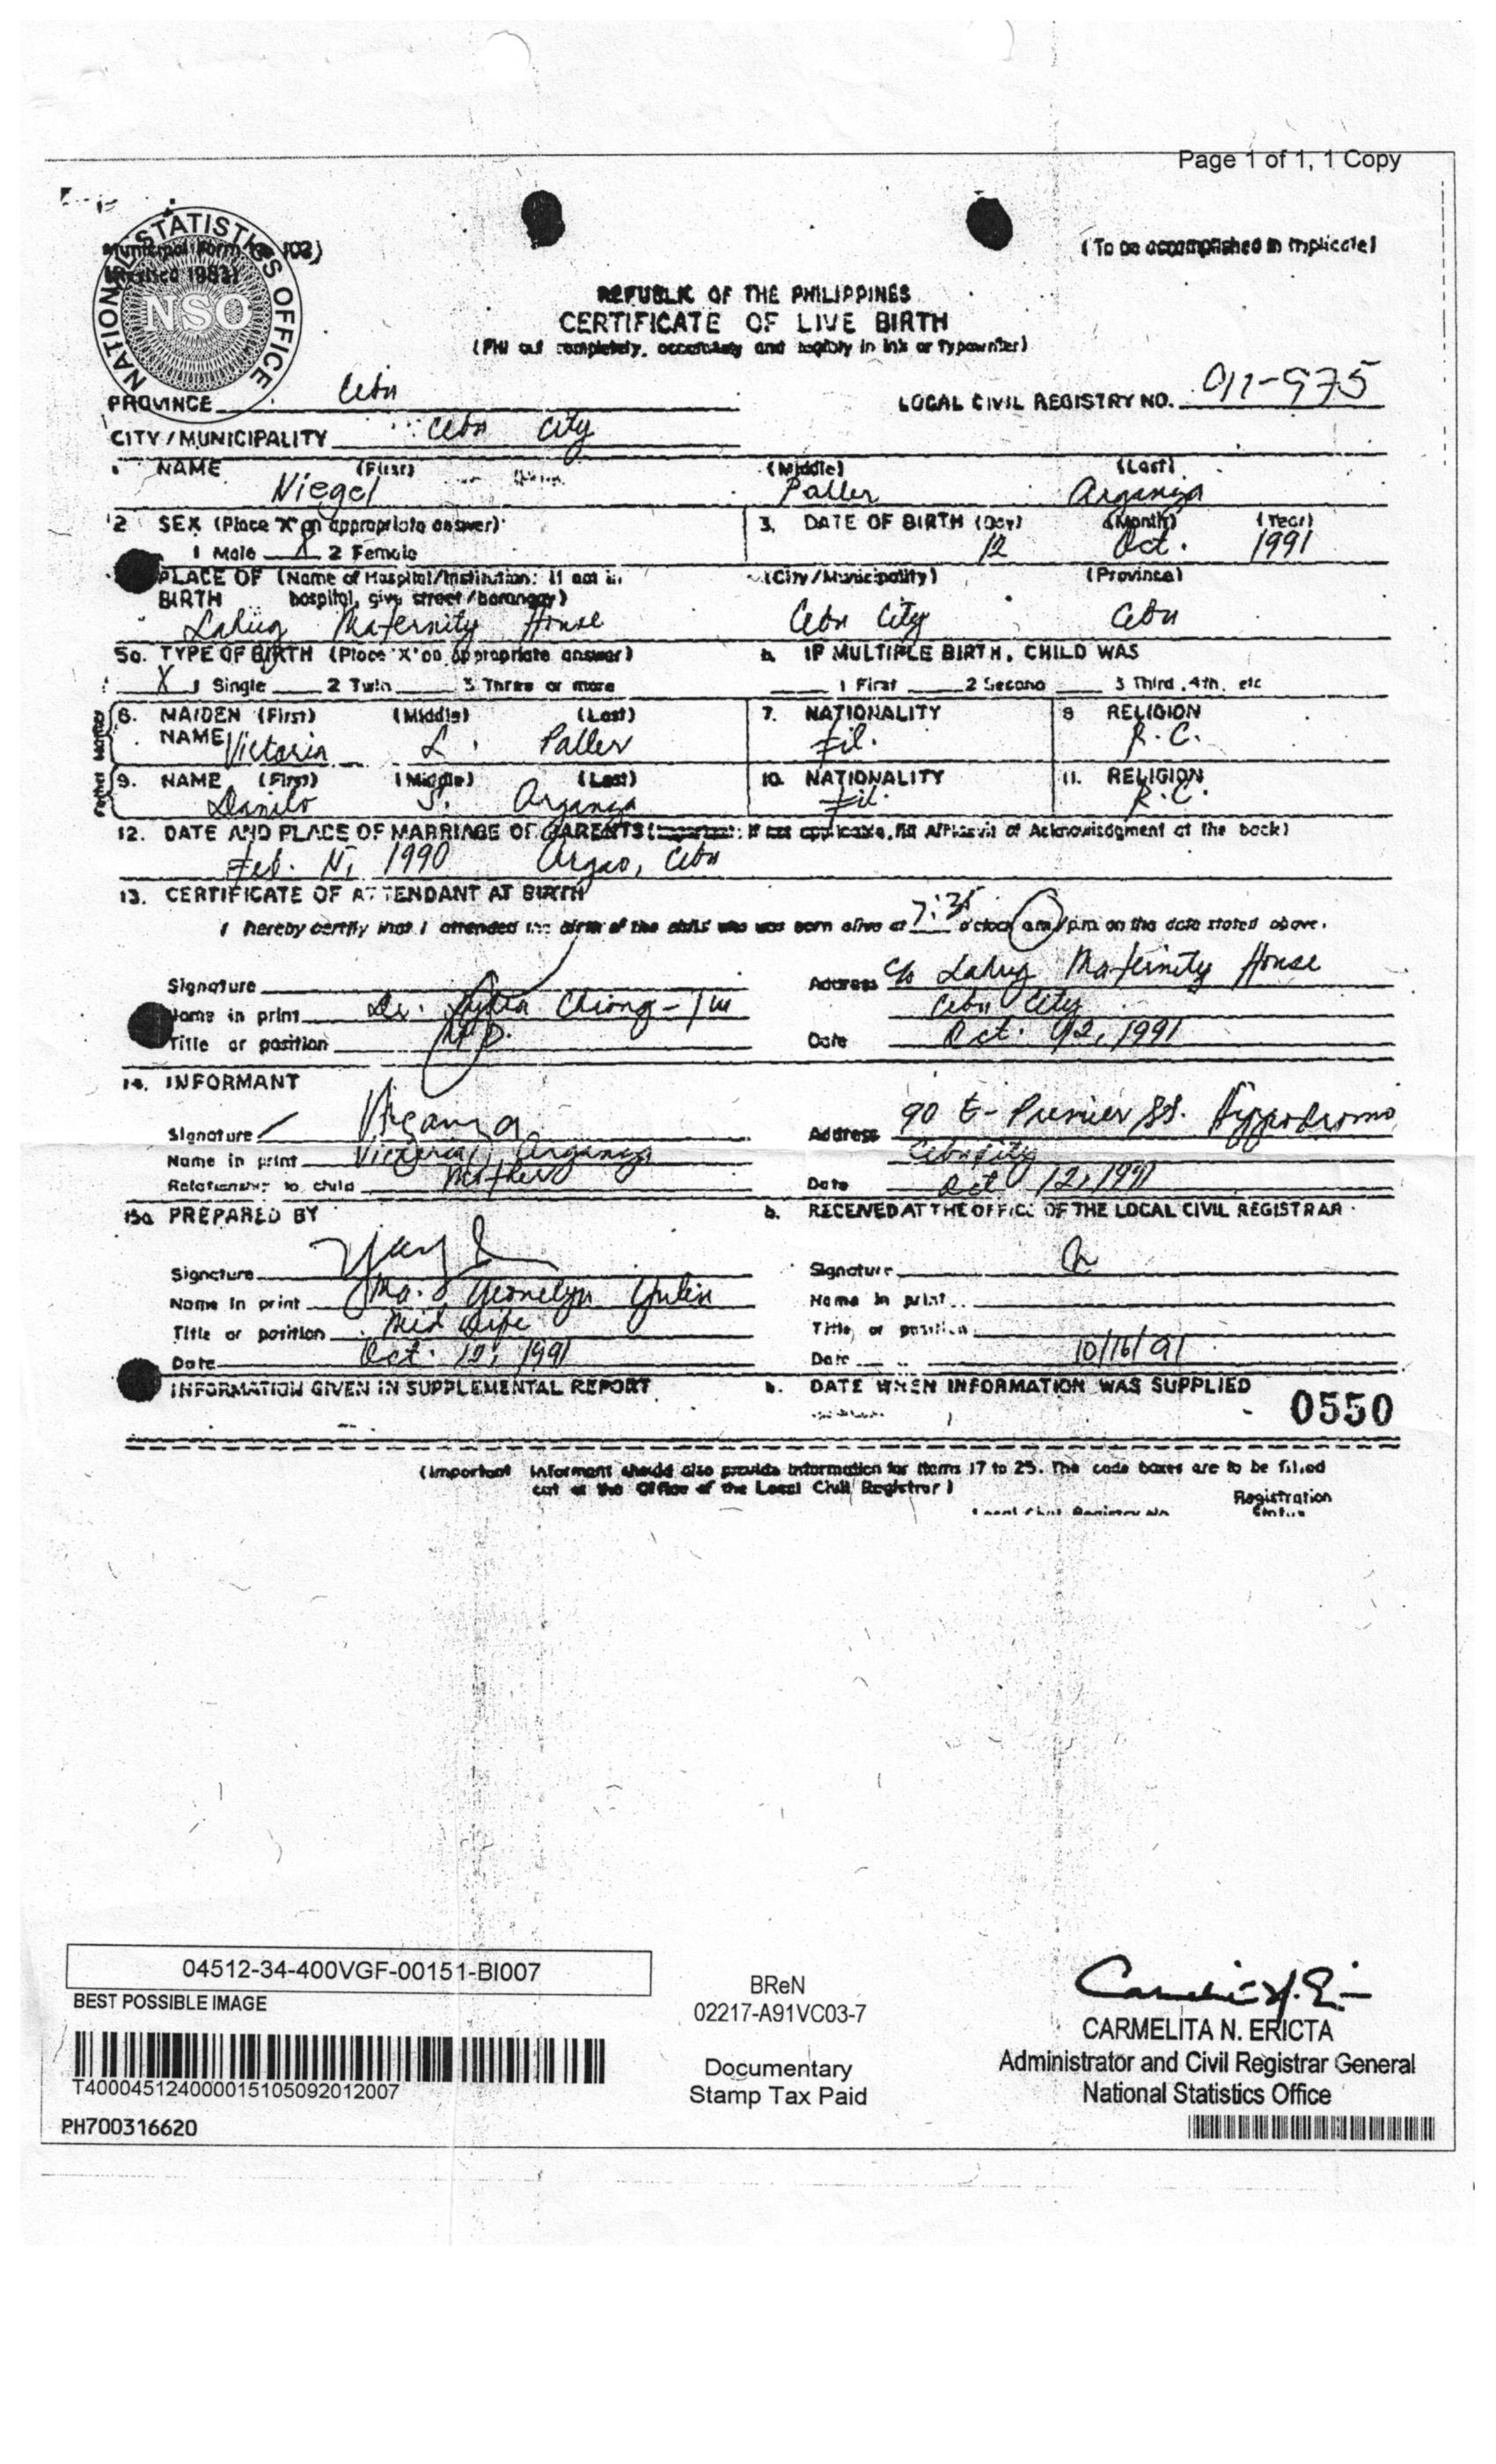 Page 1 of 1, 1 Copy
Municipal Form No. 102)
(Revised 1983)
(To be accomplished in triplicate)
NATIONAL STATISTICS OFFICE
NSO
REPUBLIC OF THE PHILIPPINES
CERTIFICATE OF LIVE BIRTH
(Fill out completely, accurately and legibly in ink or typewriter)
PROVINCE Cebu
LOCAL CIVIL REGISTRY NO. 911-975
CITY / MUNICIPALITY Cebu City
NAME (First) (Middle) (Last)
Niegel Paller Arganza
2 SEX (Place 'X' on appropriate answer): 3. DATE OF BIRTH (Day) (Month) (Year)
1 Male X 2 Female 12 Oct. 1991
PLACE OF (Name of Hospital/Institution: If not in (City/Municipality) (Province)
BIRTH hospital, give street/barangay)
Lahug Maternity House Cebu City Cebu
5a. TYPE OF BIRTH (Place 'X' on appropriate answer) b. IF MULTIPLE BIRTH, CHILD WAS
X 1 Single 2 Twin 3 Three or more 1 First 2 Second 3 Third, 4th, etc
6. MAIDEN (First) (Middle) (Last) 7. NATIONALITY 8 RELIGION
NAME Victoria L. Paller Fil. R.C.
9. NAME (First) (Middle) (Last) 10. NATIONALITY 11. RELIGION
Danilo S. Arganza Fil. R.C.
12. DATE AND PLACE OF MARRIAGE OF PARENTS (Important: If not applicable, fill Affidavit of Acknowledgment at the back)
Feb. 1990 Argao, Cebu
13. CERTIFICATE OF ATTENDANT AT BIRTH
I hereby certify that I attended the birth of the child who was born alive at 7:35 o'clock am/p.m. on the date stated above.
Signature Address c/o Lahug Maternity House
Name in print Dr. Chiong-Tiu Cebu City
Title or position M.D. Date Oct. 12, 1991
14. INFORMANT
Signature Address 90 E- Premier St. Hyppodromo
Name in print Victoria Arganza Cebu City
Relationship to child Mother Date Oct 12, 1991
15a PREPARED BY b. RECEIVED AT THE OFFICE OF THE LOCAL CIVIL REGISTRAR
Signature Signature
Name in print Ma. Yulin Name in print
Title or position Mid wife Title or position
Date Oct. 12, 1991 Date 10/16/91
INFORMATION GIVEN IN SUPPLEMENTAL REPORT b. DATE WHEN INFORMATION WAS SUPPLIED
0550
(Important Informant should also provide information for items 17 to 25. The code boxes are to be filled
out at the Office of the Local Civil Registrar)
Local Civil Registry No. Registration
Status
04512-34-400VGF-00151-BI007
BEST POSSIBLE IMAGE
T400045124000015105092012007
PH700316620
BReN
02217-A91VC03-7
Documentary
Stamp Tax Paid
CARMELITA N. ERICTA
Administrator and Civil Registrar General
National Statistics Office